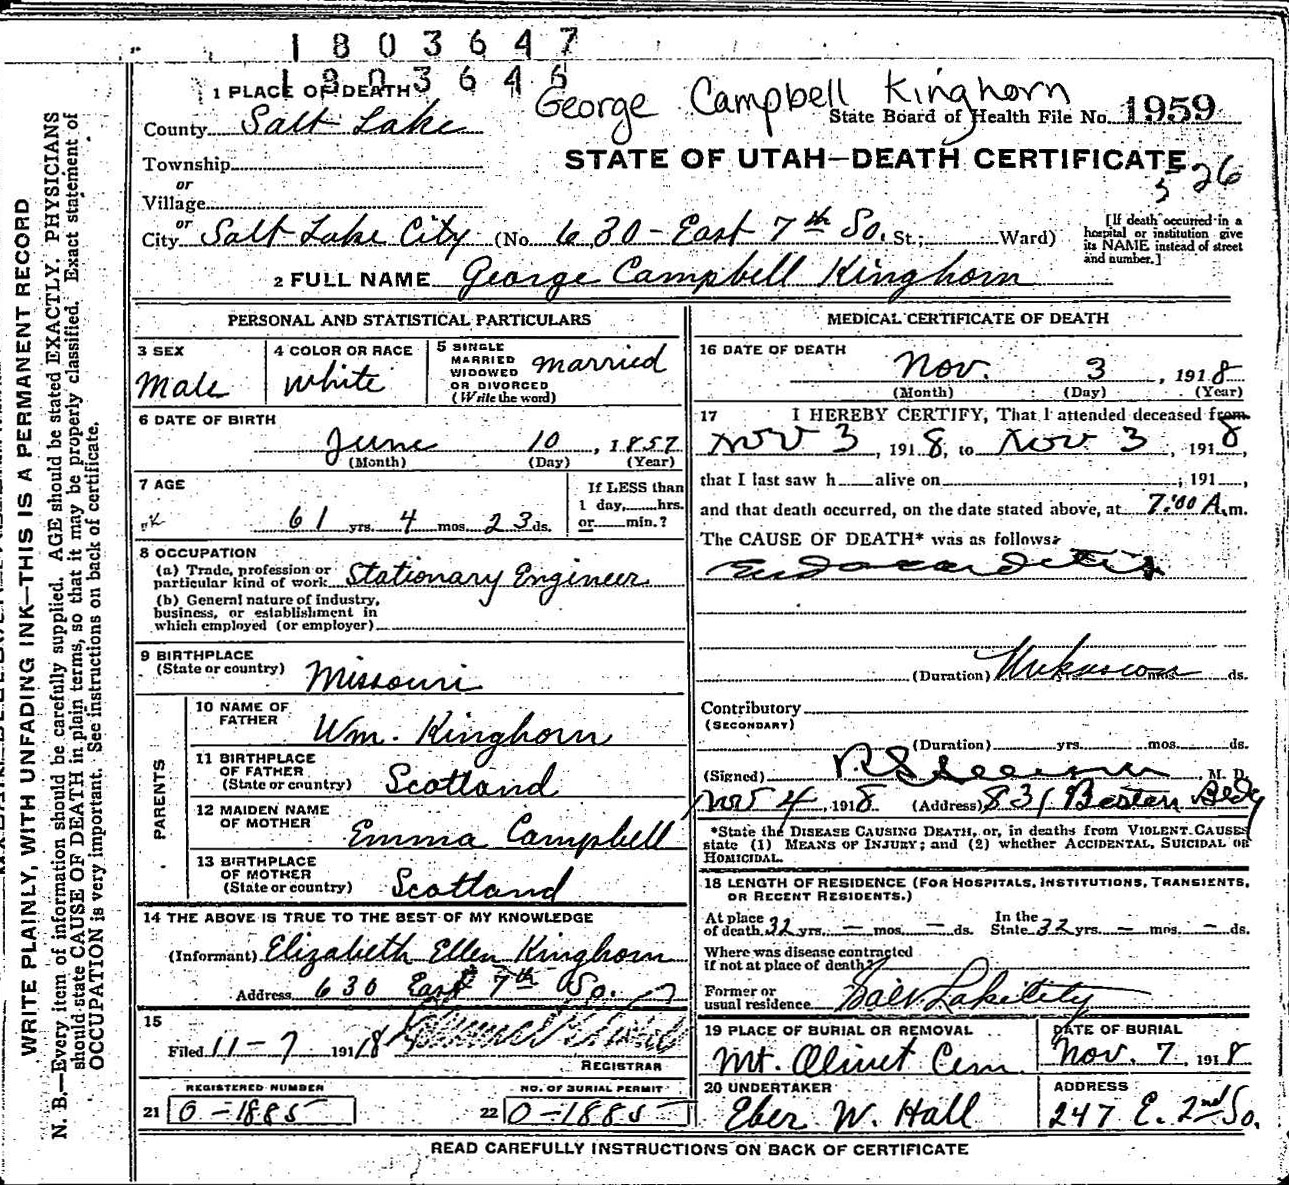 1803647
1803646
George Campbell Kinghorn
1 PLACE OF DEATH
County Salt Lake
State Board of Health File No. 1959
Township
STATE OF UTAH—DEATH CERTIFICATE
526
or
Village
or
City Salt Lake City (No. 630 - East 7th So. St.; Ward)
[If death occurred in a
hospital or institution give
its NAME instead of street
and number.]
2 FULL NAME George Campbell Kinghorn
PERSONAL AND STATISTICAL PARTICULARS
3 SEX
Male
4 COLOR OR RACE
White
5 SINGLE
MARRIED
WIDOWED
OR DIVORCED
(Write the word)
married
6 DATE OF BIRTH
June 10, 1857
(Month) (Day) (Year)
7 AGE
61 yrs. 4 mos. 23 ds.
If LESS than
1 day, hrs.
or min.?
8 OCCUPATION
(a) Trade, profession or
particular kind of work Stationary Engineer
(b) General nature of industry,
business, or establishment in
which employed (or employer)
9 BIRTHPLACE
(State or country) Missouri
PARENTS
10 NAME OF
FATHER Wm. Kinghorn
11 BIRTHPLACE
OF FATHER
(State or country) Scotland
12 MAIDEN NAME
OF MOTHER Emma Campbell
13 BIRTHPLACE
OF MOTHER
(State or country) Scotland
14 THE ABOVE IS TRUE TO THE BEST OF MY KNOWLEDGE
(Informant) Elizabeth Ellen Kinghorn
Address 630 East 7th So.
15
Filed 11-7 1918
REGISTRAR
REGISTERED NUMBER
21 0-1885
NO. OF BURIAL PERMIT
22 0-1885
MEDICAL CERTIFICATE OF DEATH
16 DATE OF DEATH
Nov. 3, 1918
(Month) (Day) (Year)
17 I HEREBY CERTIFY, That I attended deceased from
Nov 3, 1918, to Nov 3, 1918,
that I last saw h alive on ; 191 ,
and that death occurred, on the date stated above, at 7:00 A.m.
The CAUSE OF DEATH* was as follows:
Endocarditis
(Duration) Unknown yrs. mos. ds.
Contributory
(SECONDARY)
(Duration) yrs. mos. ds.
(Signed) M. D.
Nov 4, 1918 (Address) 831 Boston Bldg
*State the DISEASE CAUSING DEATH, or, in deaths from VIOLENT CAUSES
state (1) MEANS OF INJURY; and (2) whether ACCIDENTAL, SUICIDAL OR
HOMICIDAL.
18 LENGTH OF RESIDENCE (FOR HOSPITALS, INSTITUTIONS, TRANSIENTS,
OR RECENT RESIDENTS.)
At place
of death 32 yrs. — mos. — ds.
In the
State 32 yrs. — mos. — ds.
Where was disease contracted
if not at place of death?
Former or
usual residence Salt Lake City
19 PLACE OF BURIAL OR REMOVAL
Mt. Olivet Cem.
DATE OF BURIAL
Nov. 7, 1918
20 UNDERTAKER
Eber W. Hall
ADDRESS
247 E. 2nd So.
READ CAREFULLY INSTRUCTIONS ON BACK OF CERTIFICATE
WRITE PLAINLY, WITH UNFADING INK—THIS IS A PERMANENT RECORD
N. B.—Every item of information should be carefully supplied. AGE should be stated EXACTLY. PHYSICIANS
should state CAUSE OF DEATH in plain terms, so that it may be properly classified. Exact statement of
OCCUPATION is very important. See instructions on back of certificate.